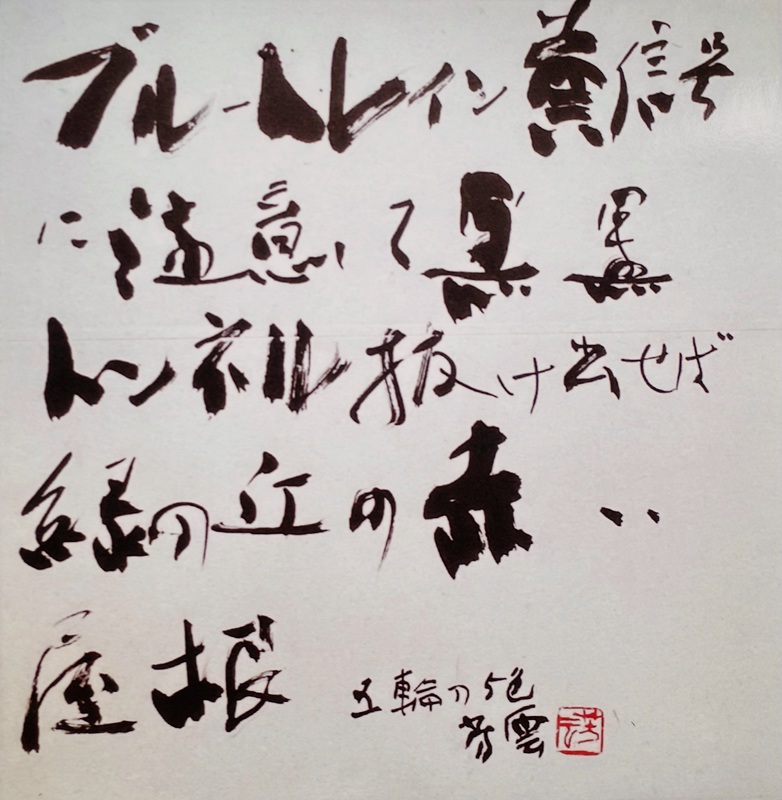 ブルートレイン黄信号
に意て黒
トンネル抜け出せば
緑の丘の赤い
屋根
五輪の5色
芳雲